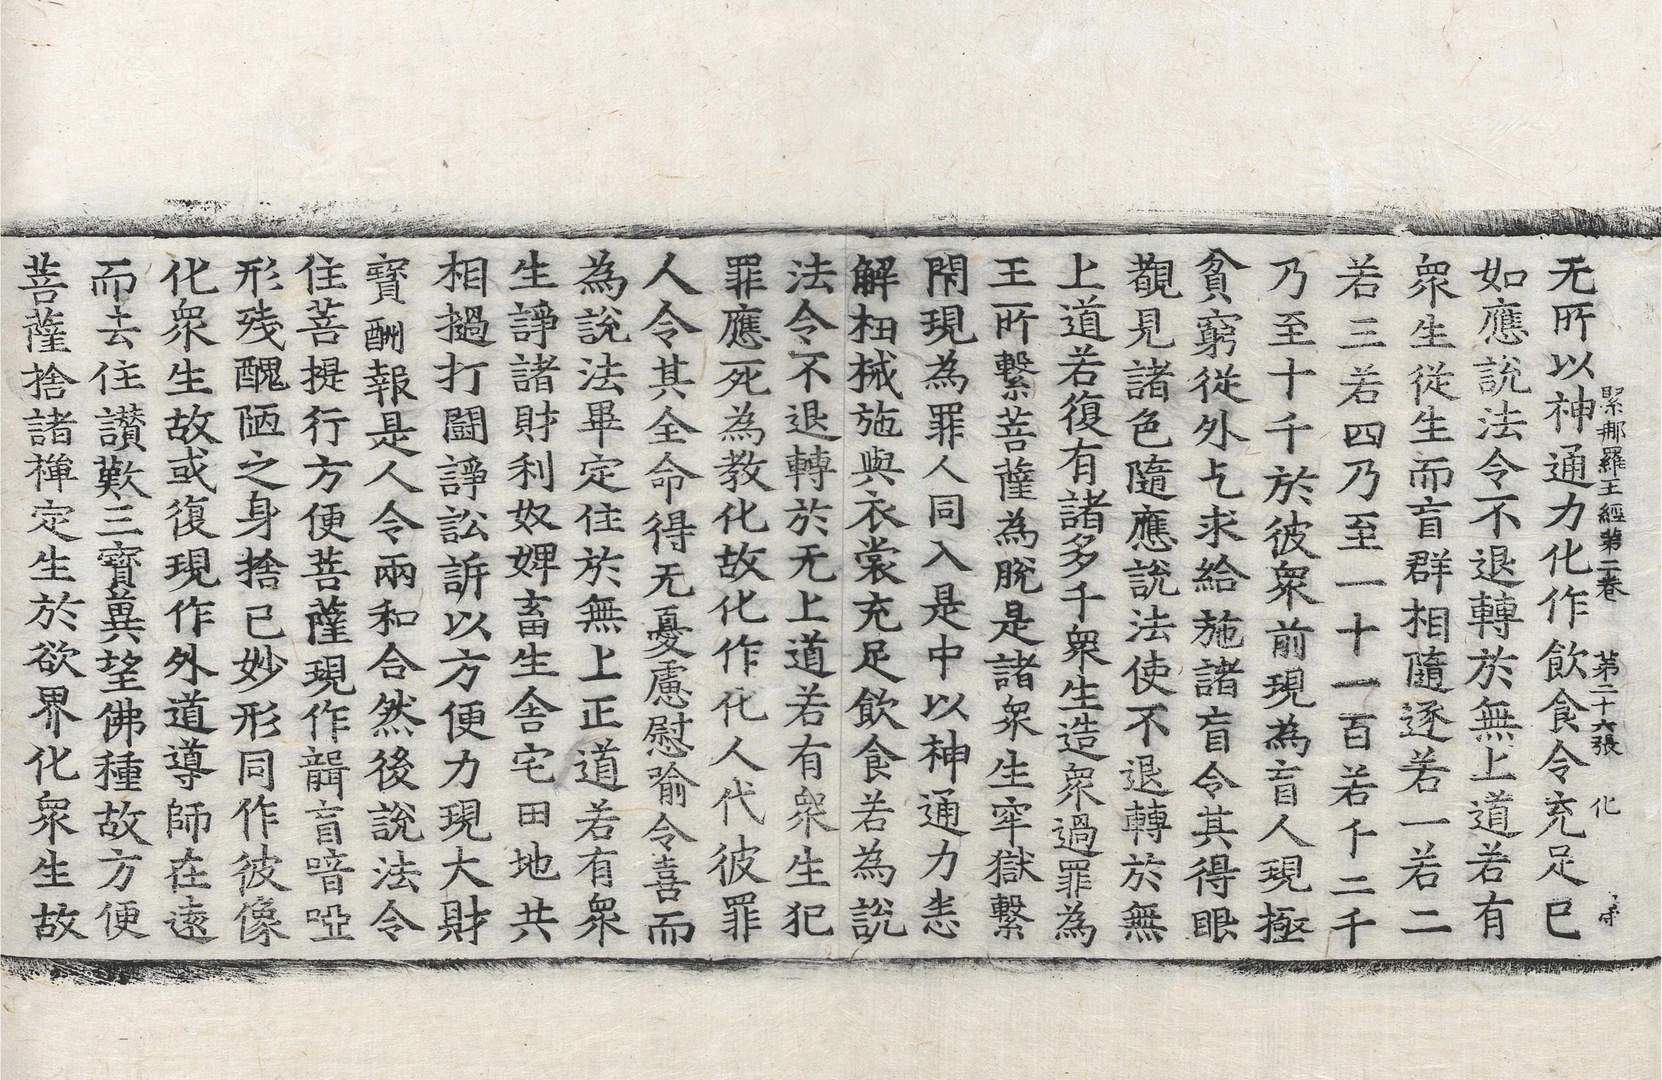 緊那羅王經第二卷　第二十六張　化
无所以神通力化作飲食令充足已
如應說法令不退轉於無上道若有
衆生從生而盲群相隨逐若一若二
若三若四乃至一十一百若千二千
乃至十千於彼衆前現為盲人現極
貧窮從外乞求給施諸盲令其得眼
覩見諸色隨應說法使不退轉於無
上道若復有諸多千衆生造衆過罪為
王所繫菩薩為脫是諸衆生牢獄繫
閉現為罪人同入是中以神通力悉
解杻械施與衣裳充足飲食若為說
法令不退轉於无上道若有衆生犯
罪應死為教化故化作化人代彼罪
人令其全命得无憂慮慰喻令喜而
為說法畢定住於無上正道若有衆
生諍諸財利奴婢畜生舍宅田地共
相撾打鬪諍訟訴以方便力現大財
寶酬報是人令兩和合然後說法令
住菩提行方便菩薩現作聾盲喑啞
形残醜陋之身捨已妙形同作彼像
化衆生故或復現作外道導師在遠
而去住讃歎三寶兾望佛種故方便
菩薩捨諸禪定生於欲界化衆生故